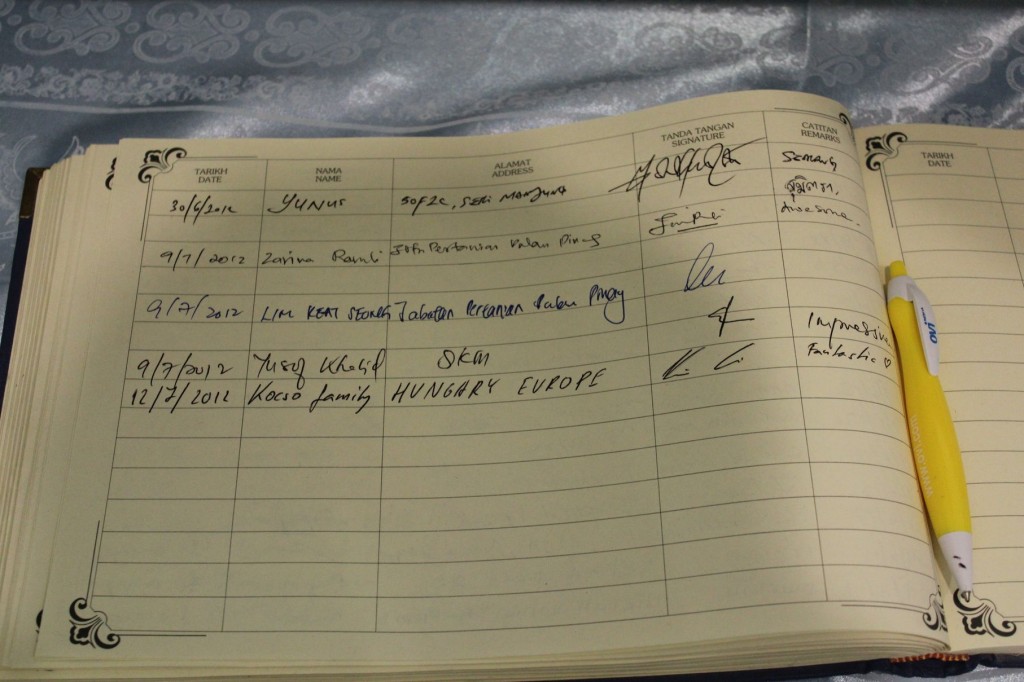 TARIKH DATE NAMA NAME ALAMAT ADDRESS TANDA TANGAN SIGNATURE CATITAN REMARKS
30/6/2012 YUNUS SERI MANJUNG
9/7/2012 Zarina Ramli Jbtn Pertanian Pulau Pinang Awesome
9/7/2012 LIM KEAT SEONG Jabatan Pertanian Pulau Pinang
9/7/2012 Yusof Khalid SKM Impressive
12/7/2012 Kocso family HUNGARY EUROPE Fantastic ♡
TARIKH DATE